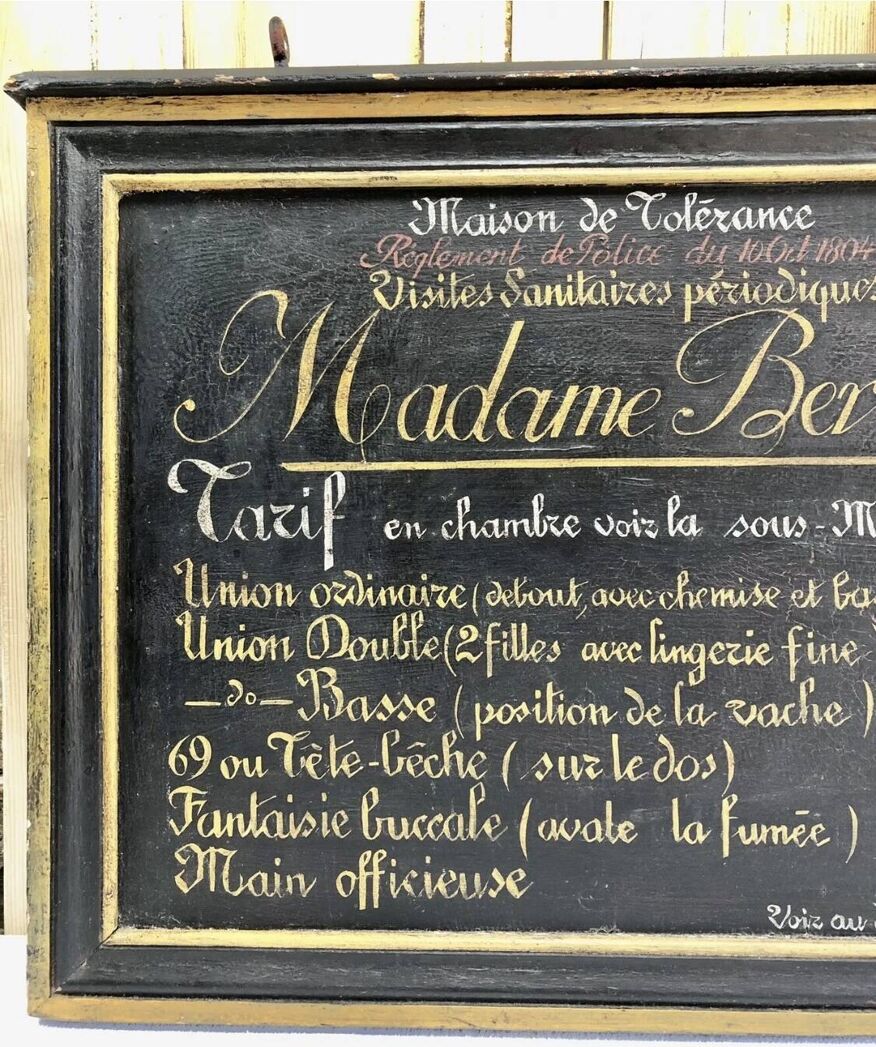 Maison de Tolérance
Reglement de Police du 10 Oct 1804
Visites Sanitaires périodiques
Madame Ber
Tarif en chambre voir la sous-M
Union ordinaire (debout, avec chemise et ba
Union Double (2 filles avec lingerie fine
-do- Basse (position de la vache)
69 ou Tête-bêche (sur le dos)
Fantaisie buccale (avale la fumée)
Main officieuse
Voir au